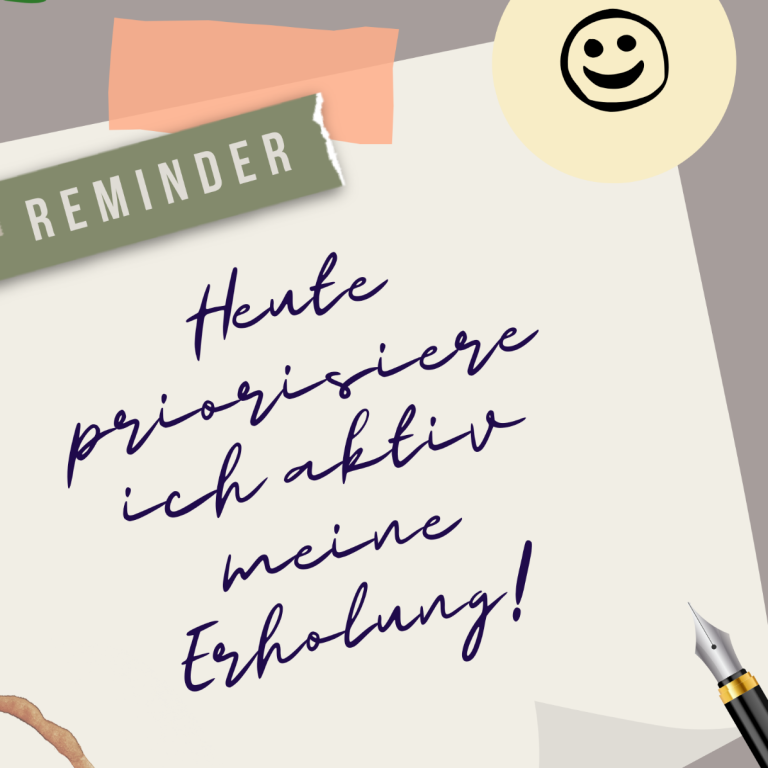 REMINDER
Heute
priorisiere
ich aktiv
meine
Erholung!